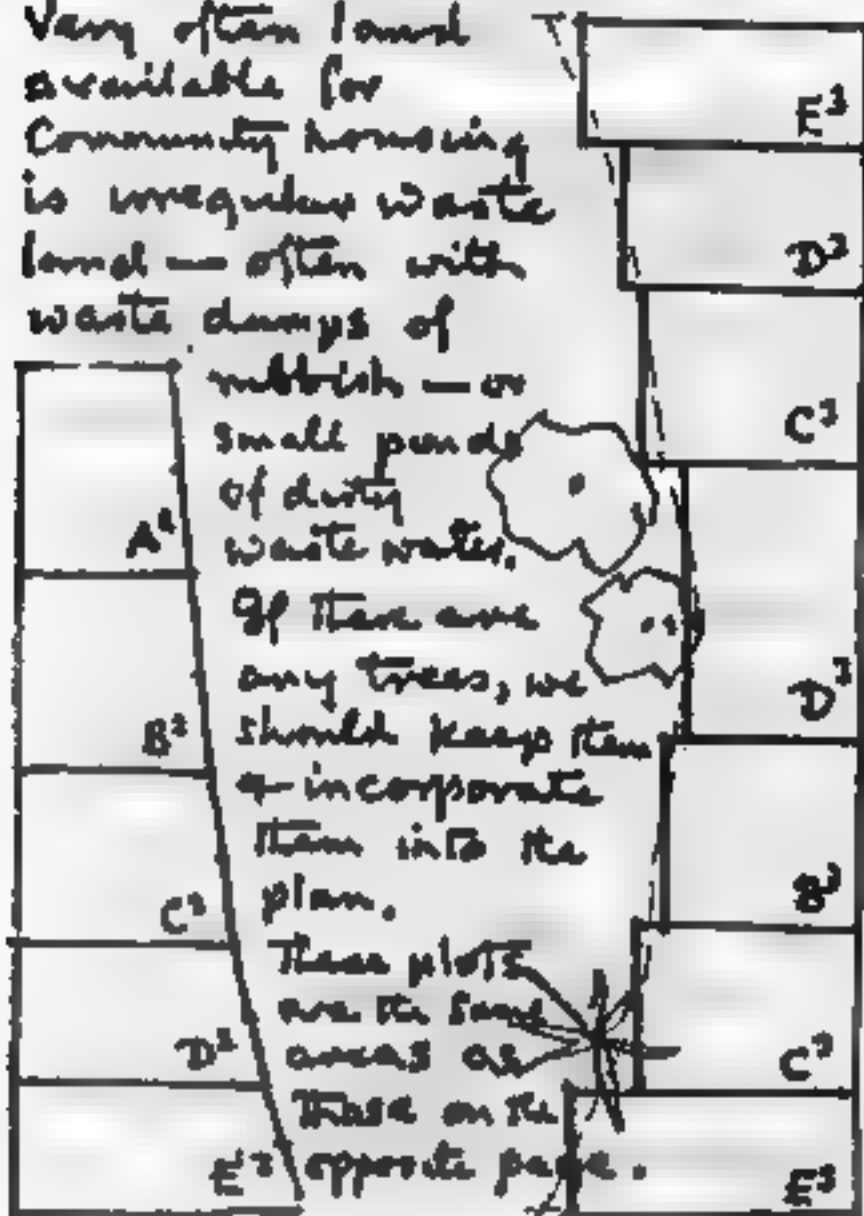 Very often land
available for
Community housing
is irregular waste
land — often with
waste dumps of
rubbish — or
small ponds
of dirty
waste water.
If there are
any trees, we
should keep them
+ incorporate
them into the
plan.
These plots
are the same
areas as
those on the
opposite page.
A²
B²
C²
D²
E²
E³
D³
C³
D³
B³
C³
E³